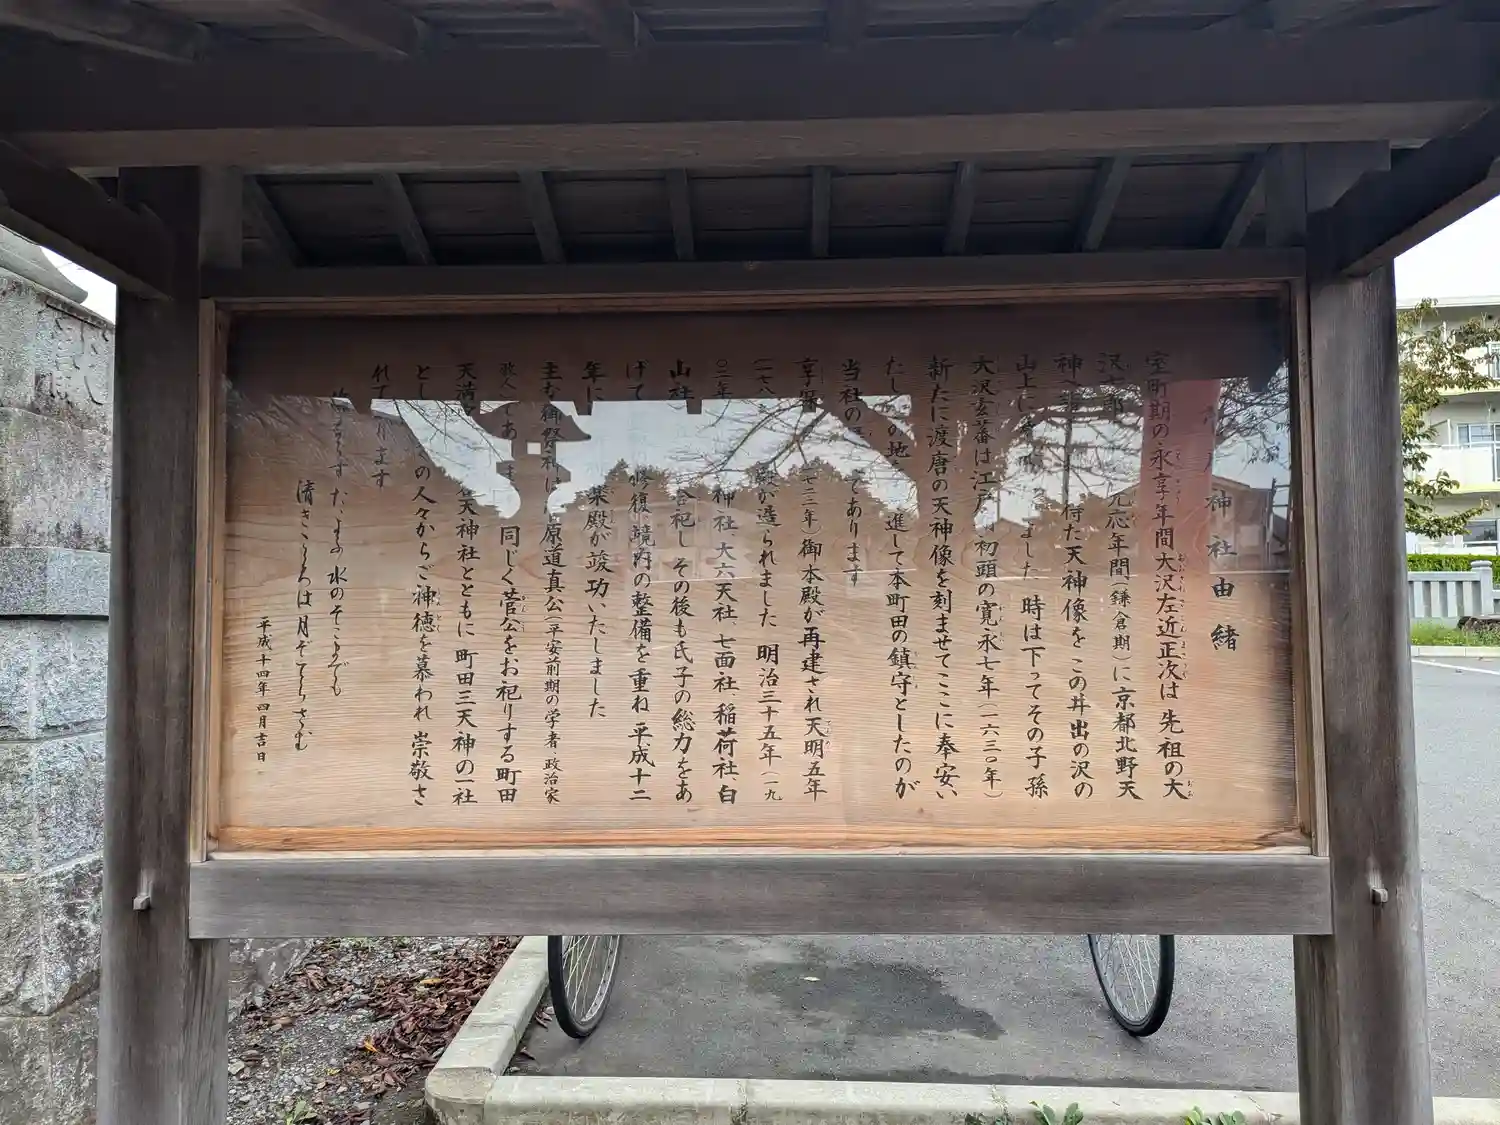 神社由緒
室町期の永享年間大沢左近正次は先祖の大
沢 元応年間(鎌倉期)に京都北野天
神へ 得た天神像をこの井出の沢の
山上に ました 時は下ってその子孫
大沢玄蕃は江戸 初頭の寛永七年(一六三〇年)
新たに渡唐の天神像を刻ませてここに奉安い
たし この地 進して本町田の鎮守としたのが
当社の であります
享保 七三三年)御本殿が再建され天明五年
(一七八 殿が造られました 明治三十五年(一九
〇二年 神社、大六天社、七面社、稲荷社、白
山社 合祀し その後も氏子の総力をあ
げて 修復、境内の整備を重ね 平成十二
年に 楽殿が竣功いたしました
主な御祭神は 原道真公(平安前期の学者 政治家
歌人 であ 同じく菅公をお祀りする町田
天満 天神社とともに町田三天神の一社
とし の人々からご神徳を慕われ 崇敬さ
れて います
ならず たゝえる水のそこまでも
清きこゝろは月ぞてらさむ
平成十四年四月吉日